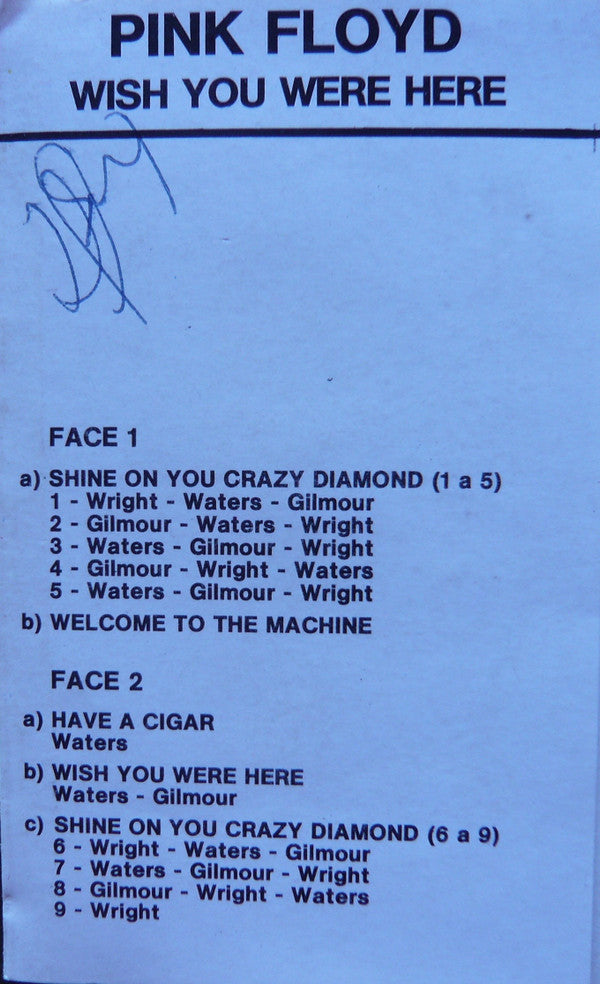 PINK FLOYD
WISH YOU WERE HERE
FACE 1
a) SHINE ON YOU CRAZY DIAMOND (1 a 5)
1 - Wright - Waters - Gilmour
2 - Gilmour - Waters - Wright
3 - Waters - Gilmour - Wright
4 - Gilmour - Wright - Waters
5 - Waters - Gilmour - Wright
b) WELCOME TO THE MACHINE
FACE 2
a) HAVE A CIGAR
Waters
b) WISH YOU WERE HERE
Waters - Gilmour
c) SHINE ON YOU CRAZY DIAMOND (6 a 9)
6 - Wright - Waters - Gilmour
7 - Waters - Gilmour - Wright
8 - Gilmour - Wright - Waters
9 - Wright